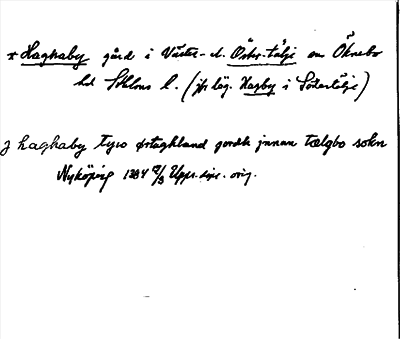 * Haghaby gård i Väster- el. Öster-tälje om Öknebo
hd Sthlms l. (jfr läg. Hagby i Södertälje)
j haghaby tyso ørtughland jordh jnnan tælgbo sokn
Nyköping 1384 2/3 Upps. dipl. orig.